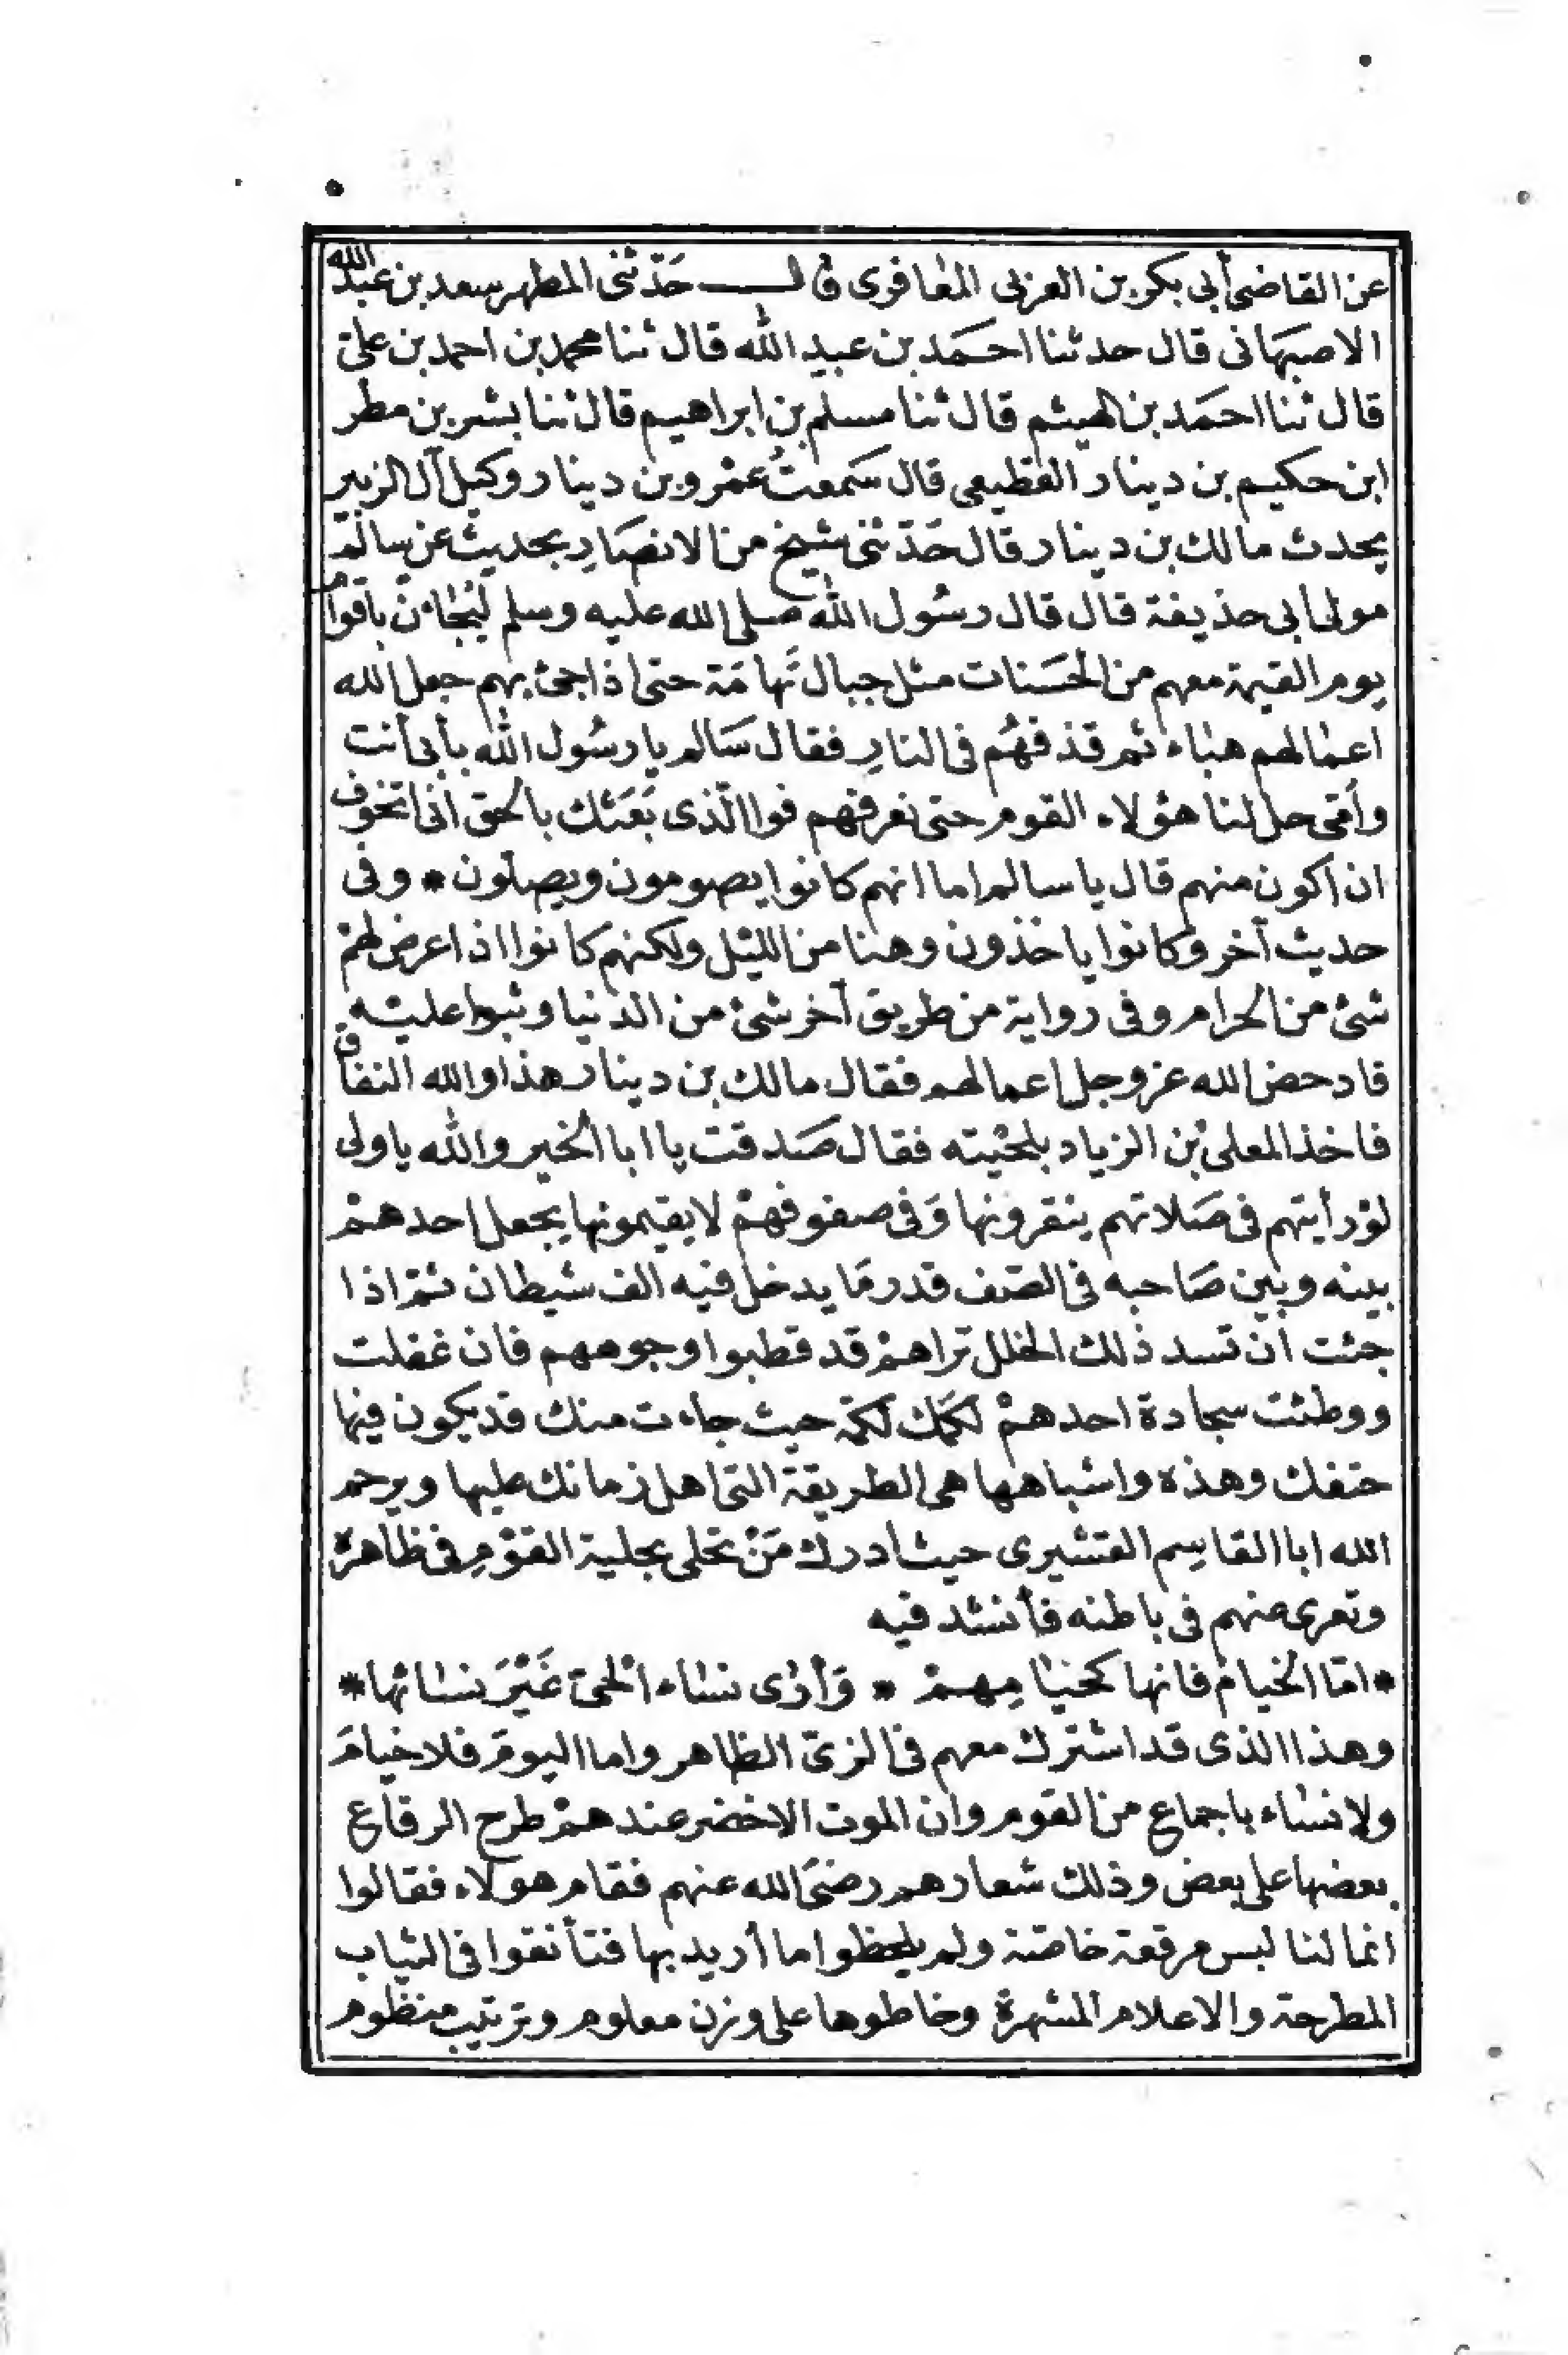 عن القاضى أبى بكر بن العربى المعافرى قال حَدّثنى المطهر سعد بن عبد الله
الاصبهانى قال حدثنا احمَد بن عبد الله قال ثنا محمد بن احمد بن علىّ
قال ثنا احمَد بن الهيثم قال ثنا مسلم بن ابراهيم قال ثنا بشر بن مطر
ابن حكيم بن دينار القطيعى قال سَمعتُ عمْرو بن دينار وكيل آل الزبير
يحدث مالك بن دينار قال حَدّثنى شيخ من الانصَارِ بحديث عن سالم
مولى ابى حذيفة قال قال رسُول الله صلى الله عليه وسلم ليُجاءنّ باقوام
يوم القيمة معهم من الحَسَنات مثل جبال تَهامَة حتى اذا جئ بهم جعل الله
اعمالهم هباء ثم قذفهُم فى النارِ فقال سَالم يا رسُول الله بأبى أنت
وأمّى حل لنا هؤلاء القوم حتى نعرفهم فوا الّذى بَعَثك بالحق انى اتخوف
ان اكون منهم قال يا سالم اما انهم كانوا يصومون ويصلّون * وفى
حديث آخر وكانوا ياخذون وهنا من الليْل ولكنهم كانوا اذا عرض لهمْ
شئ من الحرام وفى رواية من طريق آخر شئ من الدنيا وثبوا عليْه
فادحض الله عز وجل اعمالهم فقال مالك بن دينار هذا والله النفاق
فاخذ المعلى بْن الزياد بلحْيته فقال صَدقت يا ابا الخير والله يا ولى
لوْ رأيتهم فى صَلاتهم ينقرونها وَفى صفوفهمْ لا يقيمونها يجعل احدهمْ
بينه وبين صَاحبه فى الصّف قدر مَا يدخل فيه الف شيطان ثمّ اذا
جئت ان تسد ذلك الخلل تراهمْ قد قطبوا وجوههم فان غفلت
ووطئت سجادة احدهمْ لكمَك لكمّة حيث جاءت منك قد يكون فيها
حتفك وهذه واشباهها هى الطريقة التى اهل زمانك عليها ويرحم
الله ابا القاسِم القشيرى حيث أدرك مَنْ تحلى بحلية القوْمِ فى ظاهره
وتعرى عنهم فى باطنه فأنشد فيه
* امّا الخيامُ فانها كخيامِهمْ * وَأرى نساء الْحىّ غَيْرَ نسائها *
وهذا الذى قد اشترك معهم فى الزىّ الظاهر واما اليومَ فلا خيامَ
ولا نساء باجماع من القوم وان الموت الاخضر عندهمْ طرح الرقاع
بعضها على بعض وذلك شعارهم رضىَ الله عنهم فقام هولاء فقالوا
انما لنا لبس مرقعة خاصّة ولم يلحظوا ما أريد بها فتأنقوا فى الثياب
المطرحة والاعلام المشهرة وخاطوها على وزن معلوم وترتيب منظوم